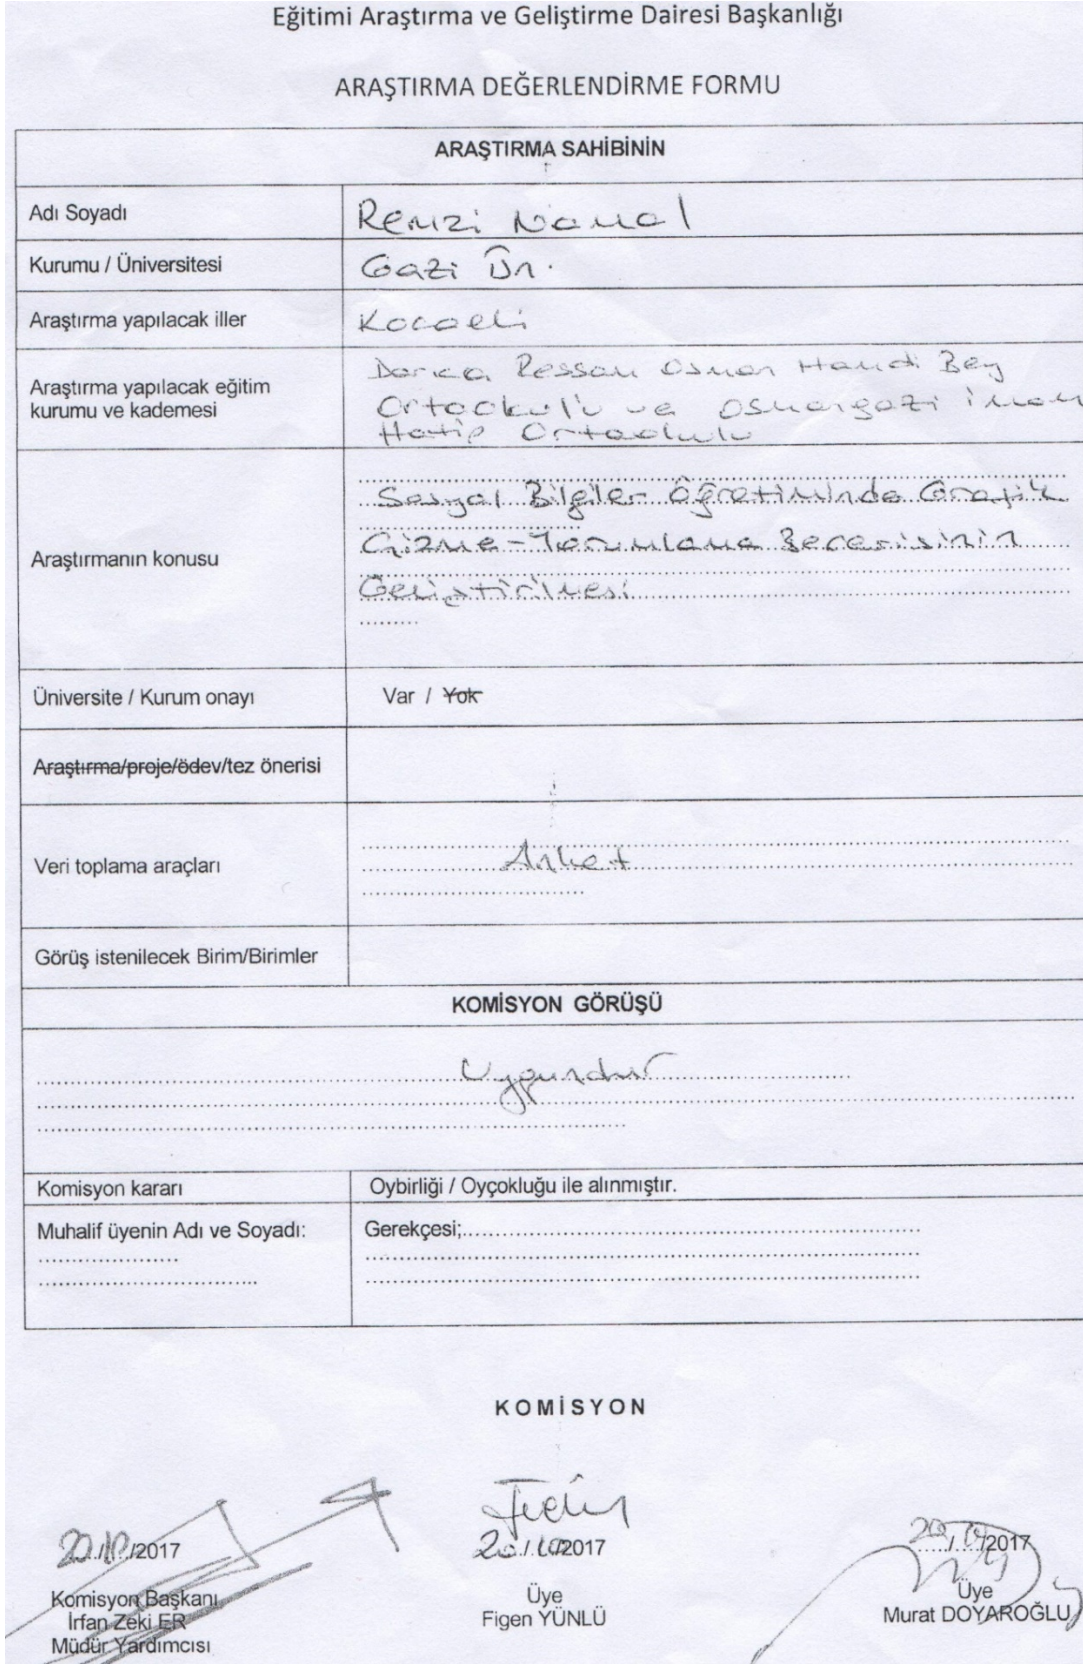 Eğitimi Araştırma ve Geliştirme Dairesi Başkanlığı
ARAŞTIRMA DEĞERLENDİRME FORMU
ARAŞTIRMA SAHİBİNİN
Adı Soyadı Remzi Namal
Kurumu / Üniversitesi Gazi Ün.
Araştırma yapılacak iller Kocaeli
Araştırma yapılacak eğitim kurumu ve kademesi
Darıca Ressam Osman Hamdi Bey
Ortaokulu ve Osmangazi İmam
Hatip Ortaokulu
Araştırmanın konusu
Sosyal Bilgiler Öğretiminde Grafik
Çizme-Yorumlama Becerisinin
Geliştirilmesi
Üniversite / Kurum onayı Var / Yok
Araştırma/proje/ödev/tez önerisi
Veri toplama araçları Anket
Görüş istenilecek Birim/Birimler
KOMİSYON GÖRÜŞÜ
Uygundur
Komisyon kararı Oybirliği / Oyçokluğu ile alınmıştır.
Muhalif üyenin Adı ve Soyadı: Gerekçesi;
KOMİSYON
20/10/2017 20/10/2017 20/10/2017
Komisyon Başkanı Üye Üye
İrfan Zeki ER Figen YÜNLÜ Murat DOYAROĞLU
Müdür Yardımcısı